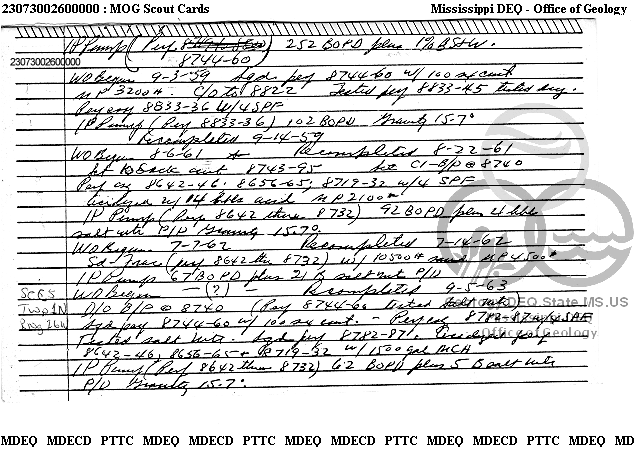 23073002600000 : MOG Scout Cards
Mississippi DEQ - Office of Geology
IP Pump (Perf 8744-60) 252 BOPD plus 1% BS+W.
23073002600000
WO Began 9-3-59 Sqd perf 8744-60 w/100 sx cmt
MP 3200#. C/O to 8822 Tested perf 8833-45 tested dry.
Perf csg 8833-36 w/4 SPF
IP Pump (Perf 8833-36) 102 BOPD Gravity 15.7°
Recompleted 9-14-59
WO Began 8-6-61 + Recompleted 8-22-61
cmt 8743-95 set CI-B/P @ 8740
Perf csg 8642-46; 8656-65; 8719-32 w/4 SPF
Acidized w/ bbls acid MP 2100#
IP Pump (Perf 8642 thru 8732) 92 BOPD plus 4 bbls
salt wtr P/D Gravity 15.7°
WO Began 7-7-62 Recompleted 7-14-62
Sd-Frac (perf 8642 thru 8732) w/ 10500# sand MP 4500#
IP Pump 67 BOPD plus 21 B salt wtr P/D
WO Began - (?) - Recompleted 9-5-63
Sec 5
Twp 1N
Rng 16W
D/O B/P @ 8740 (Perf 8744-60 Tested salt wtr)
MDEQ.State.MS.US
Sqd perf 8744-60 w/100 sx cmt. - Perf csg 8782-87 w/4 SPF
Office of Geology
Tested salt wtr. Sqd perf 8782-87. Acidized perf
8642-46, 8656-65 + 8719-32 w/1500 gal MCA
IP Pump (Perf 8642 thru 8732) 62 BOPD plus 5 B salt wtr
P/D Gravity 15.7°
MDEQ MDECD PTTC MDEQ MDECD PTTC MDEQ MDECD PTTC MDEQ MDECD PTTC MDEQ MD